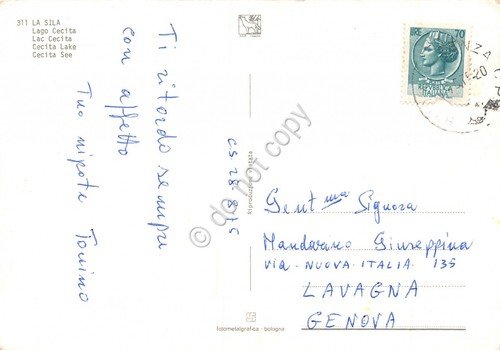 311 LA SILA
Lago Cecita
Lac Cecita
Cecita Lake
Cecita See
Ti ricordo sempre
con affetto
Tuo nipote Tonino
CS 28.8.75
Riproduzione vietata
LIRE 70
Gent.ma Signora
Mandarino Giuseppina
VIA - NUOVA - ITALIA. 135
LAVAGNA
GENOVA
fotometalgrafica - bologna
do not copy